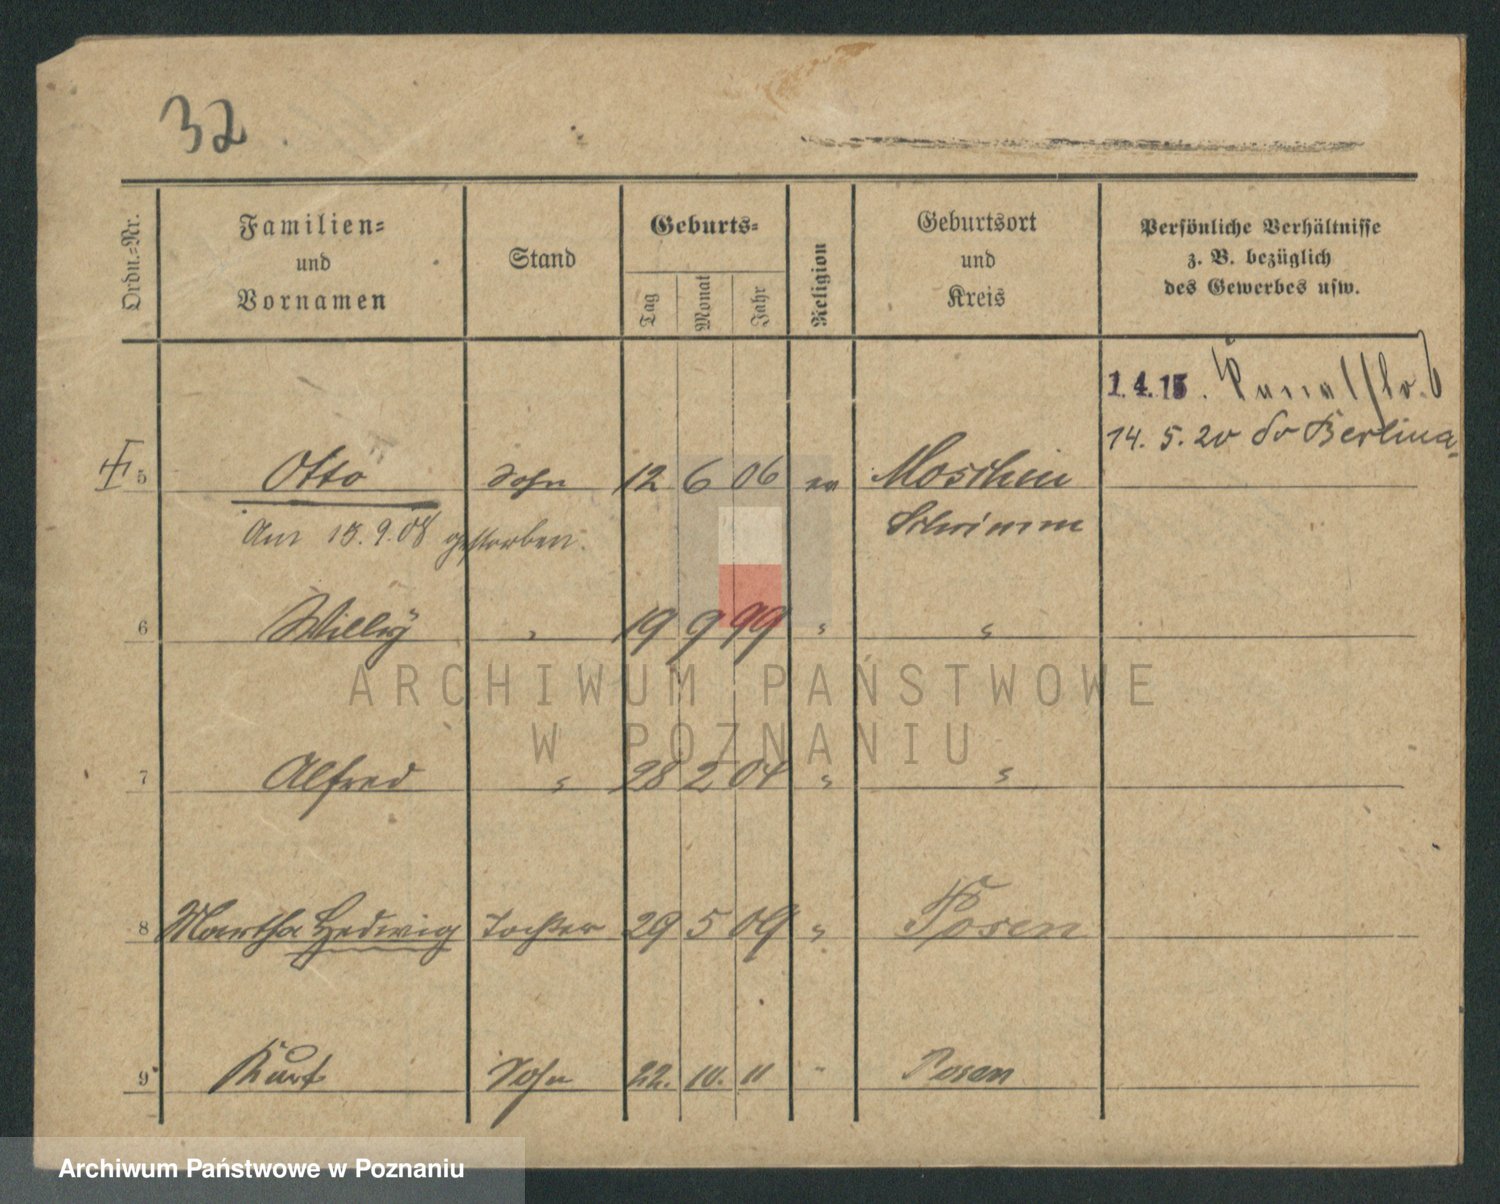 32
Ordn.=Nr.
Familien=
und
Vornamen
Stand
Geburts=
Tag
Monat
Jahr
Religion
Geburtsort
und
Kreis
Persönliche Verhältnisse
z. B. bezüglich
des Gewerbes usw.
1.4.15.
14. 5. 20 Berlin
5 Otto Sohn 12 6 06 ev Moschin
Am 13.9.08 gestorben. Schrimm
6 Willy " 19 9 99 " "
ARCHIWUM PAŃSTWOWE
W POZNANIU
7 Alfred " 28 2 04 " "
8 Martha Hedwig Tochter 29 5 09 " Posen
9 Kurt Sohn 22. 10. 11 " Posen
Archiwum Państwowe w Poznaniu